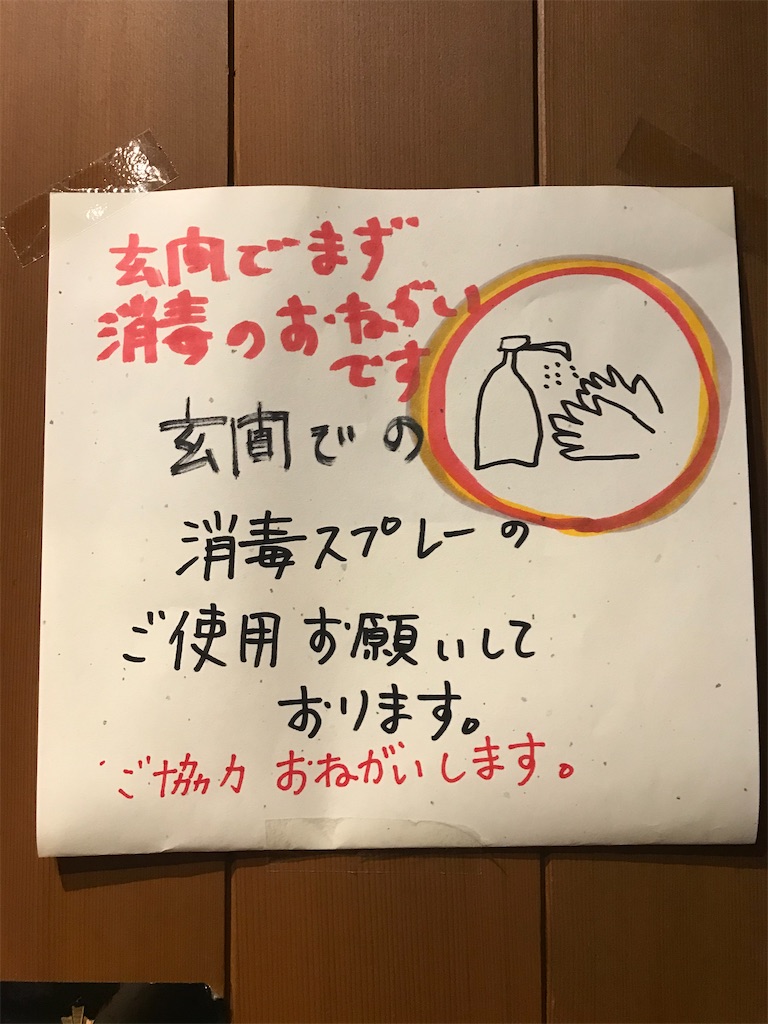 玄関でまず
消毒のおねがい
です
玄関での
消毒スプレーの
ご使用お願いして
おります。
ご協力 おねがいします。